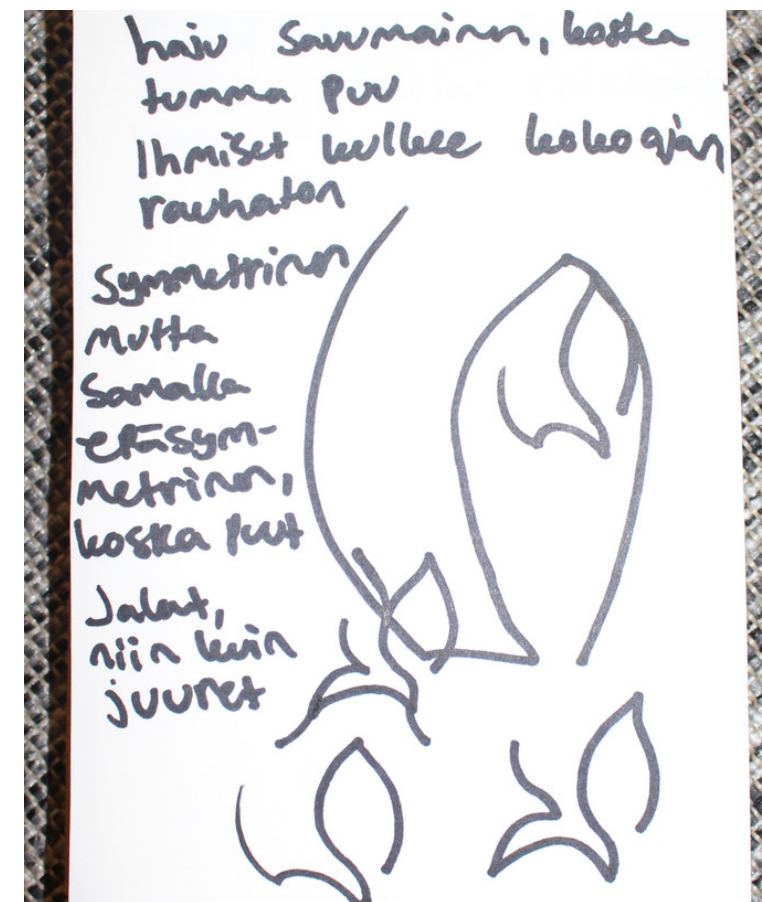 haju savumainen, koska
tumma puu
Ihmiset kulkee koko ajan
rauhaton
Symmetrinen
mutta
samalla
epäsym-
metrinen,
koska puut
Jalat,
niin kuin
juuret